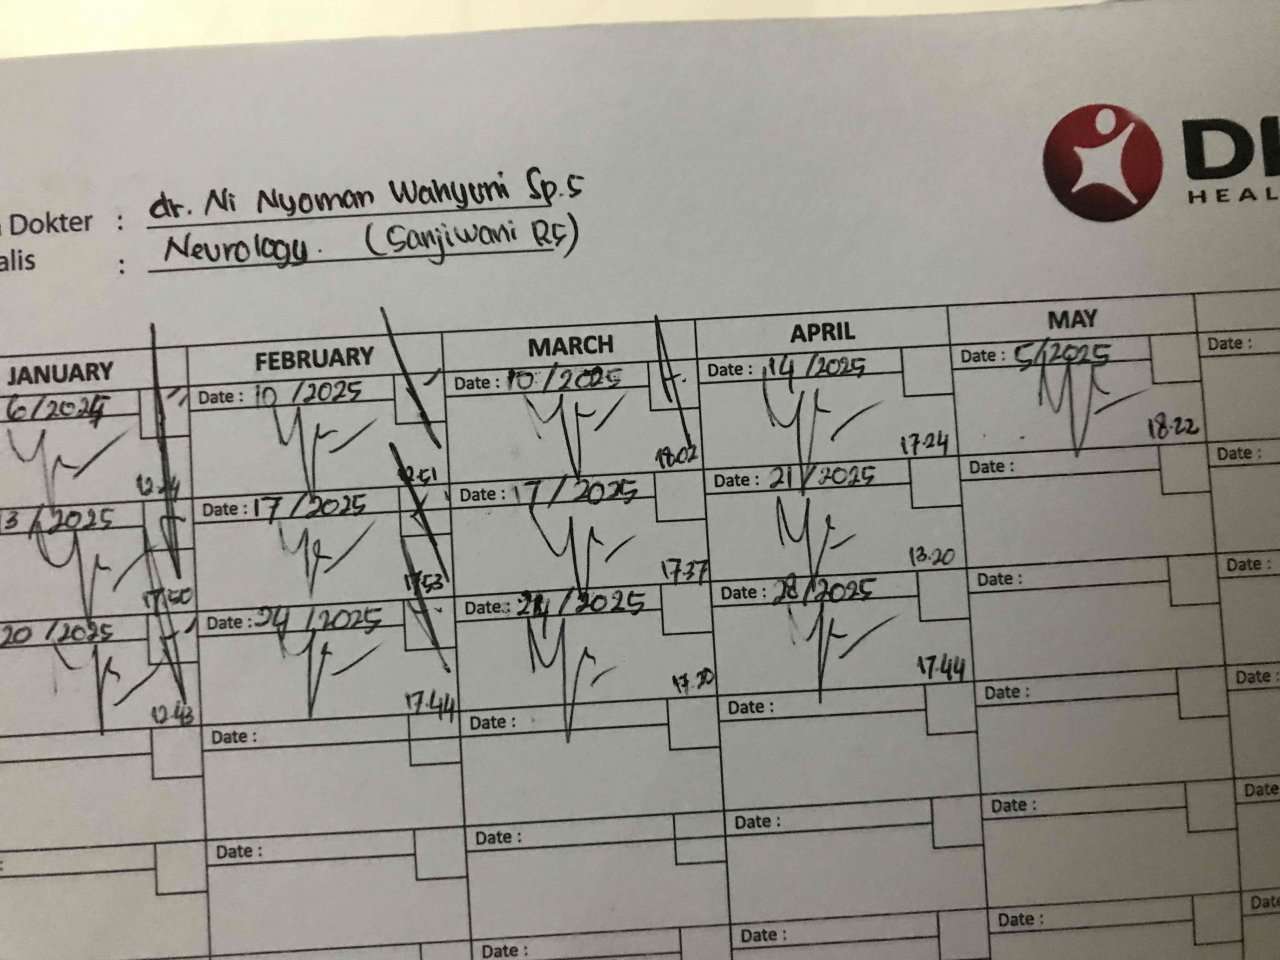 DI
HEAL
Dokter : dr. Ni Nyoman Wahyuni Sp.S
alis : Neurology. (Sanjiwani RS)
JANUARY FEBRUARY MARCH APRIL MAY
6/2025 Date : 10 /2025 Date : 10 /2025 Date : 14 /2025 Date : 5/2025 Date :
12.51 18.02 17.24 18.22
3 /2025 Date : 17 /2025 Date : 17 /2025 Date : 21 /2025 Date :
17.50 17.53 17.37 13.20
20 /2025 Date : 24 /2025 Date : 24 /2025 Date : 28/2025 Date : Date :
12.43 17.44 17.30 17.44
Date : Date : Date : Date : Date :
Date : Date : Date : Date : Date
Date : Date : Date : Dat